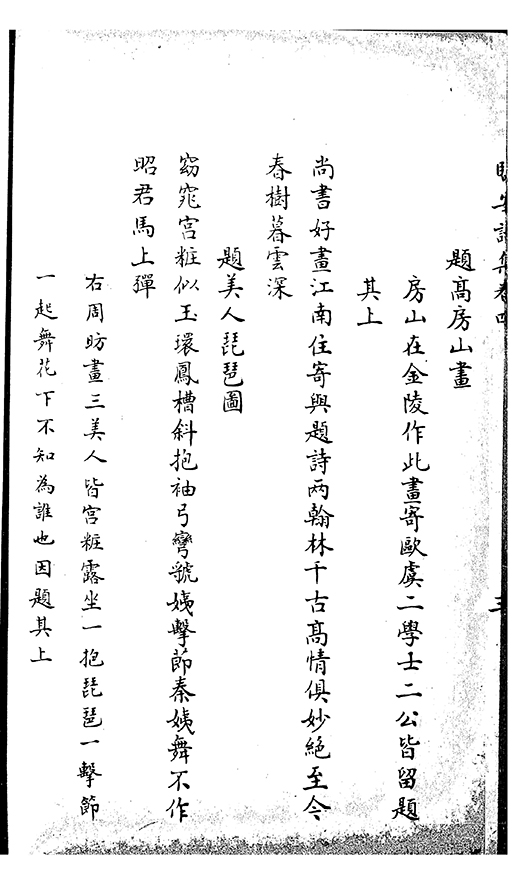 題髙房山畫
房山在金陵作此畫寄歐虞二學士二公皆留題
其上
尚書好畫江南住寄興題詩两翰林千古髙情俱妙絶至今
春樹暮雲深
題美人琵琶圖
窈窕宫粧似玉環鳳槽斜抱袖弓彎虢姨擊節秦姨舞不作
昭君馬上彈
右周昉畫三美人皆宫粧露坐一抱琵琶一擊節
一起舞花下不知為誰也因題其上